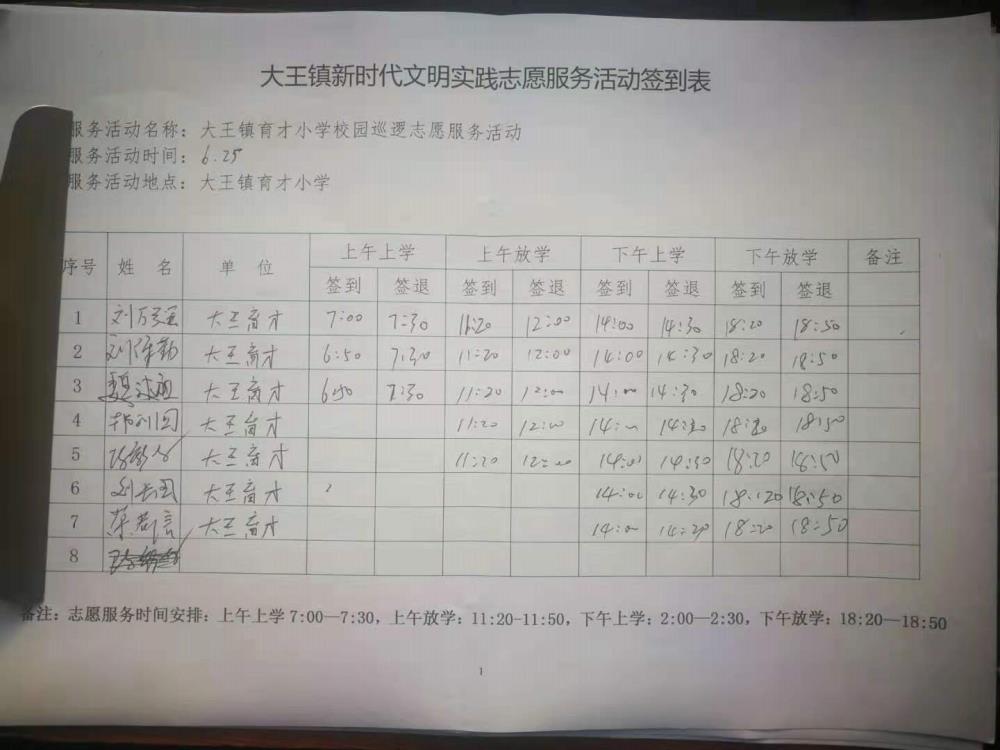 大王镇新时代文明实践志愿服务活动签到表
服务活动名称：大王镇育才小学校园巡逻志愿服务活动
服务活动时间：6.25
服务活动地点：大王镇育才小学
序号 姓 名 单 位 上午上学 上午放学 下午上学 下午放学 备注
签到 签退 签到 签退 签到 签退 签到 签退
1 大王育才 7:00 7:30 11:20 12:00 14:00 14:30 18:20 18:50
2 大王育才 6:50 7:30 11:20 12:00 14:00 14:30 18:20 18:50
3 大王育才 6:50 7:30 11:20 12:00 14:00 14:30 18:20 18:50
4 大王育才 11:20 12:00 14:00 14:30 18:20 18:50
5 大王育才 11:20 12:00 14:00 14:30 18:20 18:50
6 大王育才 14:00 14:30 18:20 18:50
7 大王育才 14:00 14:30 18:20 18:50
8
备注：志愿服务时间安排：上午上学 7:00—7:30，上午放学：11:20-11:50，下午上学：2:00—2:30，下午放学：18:20—18:50
1